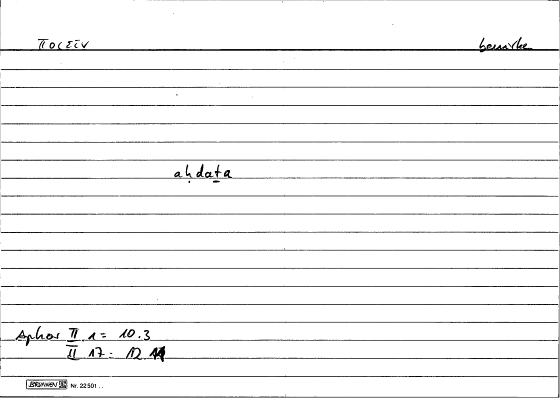 ποιεῖν bewirke
aḥdaṯa
Aphor II 1 = 10.3
II 17 = 12.
BRUNNEN Nr. 22501